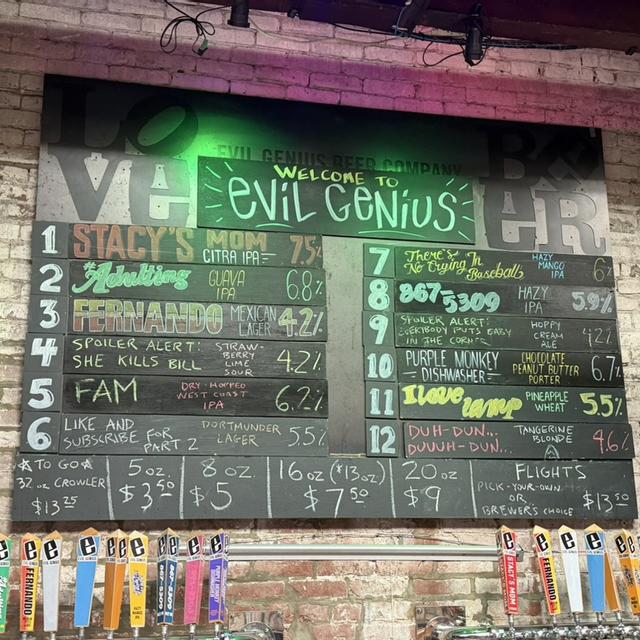 LOVE
BEER
EVIL GENIUS BEER COMPANY
WELCOME TO
EVIL GENIUS
1 STACY'S MOM CITRA IPA 7.5%
2 #Adulting GUAVA IPA 6.8%
3 FERNANDO MEXICAN LAGER 4.2%
4 SPOILER ALERT: SHE KILLS BILL STRAW-BERRY LIME SOUR 4.2%
5 FAM DRY-HOPPED WEST COAST IPA 6.2%
6 LIKE AND SUBSCRIBE FOR PART 2 DORTMUNDER LAGER 5.5%
7 There's No Crying In Baseball HAZY MANGO IPA 6%
8 867-5309 HAZY IPA 5.9%
9 SPOILER ALERT: HOPPY CREAM ALE 4.2%
10 PURPLE MONKEY DISHWASHER CHOCOLATE PEANUT BUTTER PORTER 6.7%
11 I love lamp PINEAPPLE WHEAT 5.5%
12 DUH-DUN... DUUUH-DUN... TANGERINE BLONDE 4.6%
TO GO
32 OZ CROWLER
$13.25
5 oz.
$3.50
8 oz.
$5
16 oz (*13 oz)
$7.50
20 oz
$9
FLIGHTS
PICK-YOUR-OWN
OR
BREWER'S CHOICE
$13.50
FERNANDO
867-5309
STACY'S MOM
FERNANDO